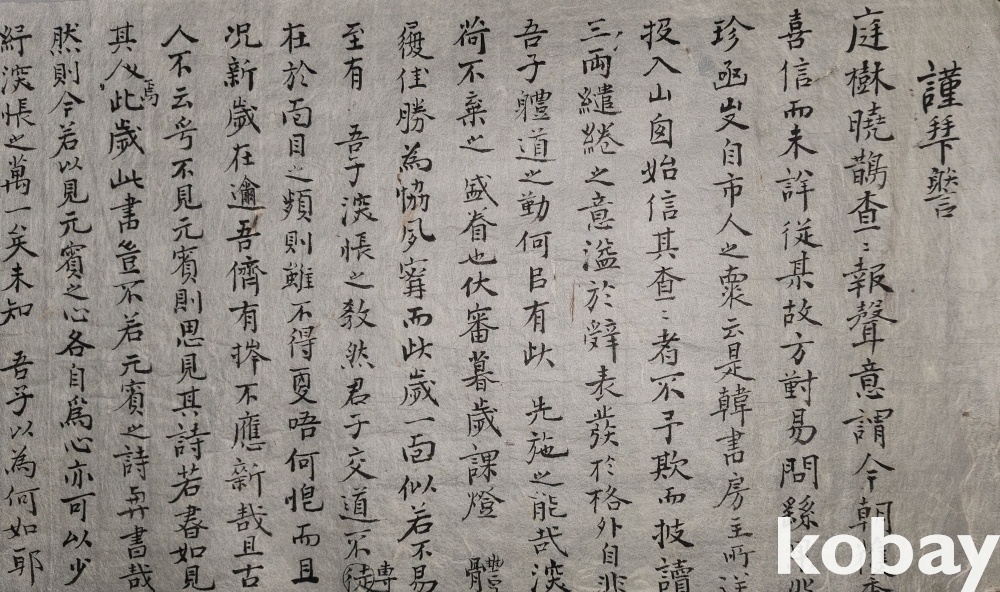 謹拜謝言
庭樹曉鵲查〻報聲意謂今朝
喜信而未詳從某故方對易問繇
珍函忽自市人之橐云是韓書房主所送
投入山囱始信其查〻者不予欺而披讀
三兩繾綣之意溢於辭表發於格外自非
吾子軆道之勤何㠯有此 先施之能哉深
荷不棄之 盛眷也伏審暮歲課燈 體
履佳勝為協夙寗而此歲一面似若不易
至有 吾子深悵之敎然君子交道不徒專
在於面目之頻則雖不得更唔何悒而且
况新歲在邇吾儕有捧不應新哉且古
人不云乎不見元賓則思見其詩若書如見
其人焉此歲此書豈不若元賓之詩與書哉
然則今若以見元賓之心各自爲心亦可以少
紓深悵之萬一矣未知 吾子以為何如耶
kobay